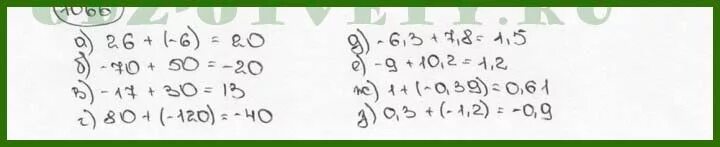 1066
а) 26 + (-6) = 20
б) -70 + 50 = -20
в) -17 + 30 = 13
г) 80 + (-120) = -40
д) -6,3 + 7,8 = 1,5
е) -9 + 10,2 = 1,2
ж) 1 + (-0,39) = 0,61
з) 0,3 + (-1,2) = -0,9